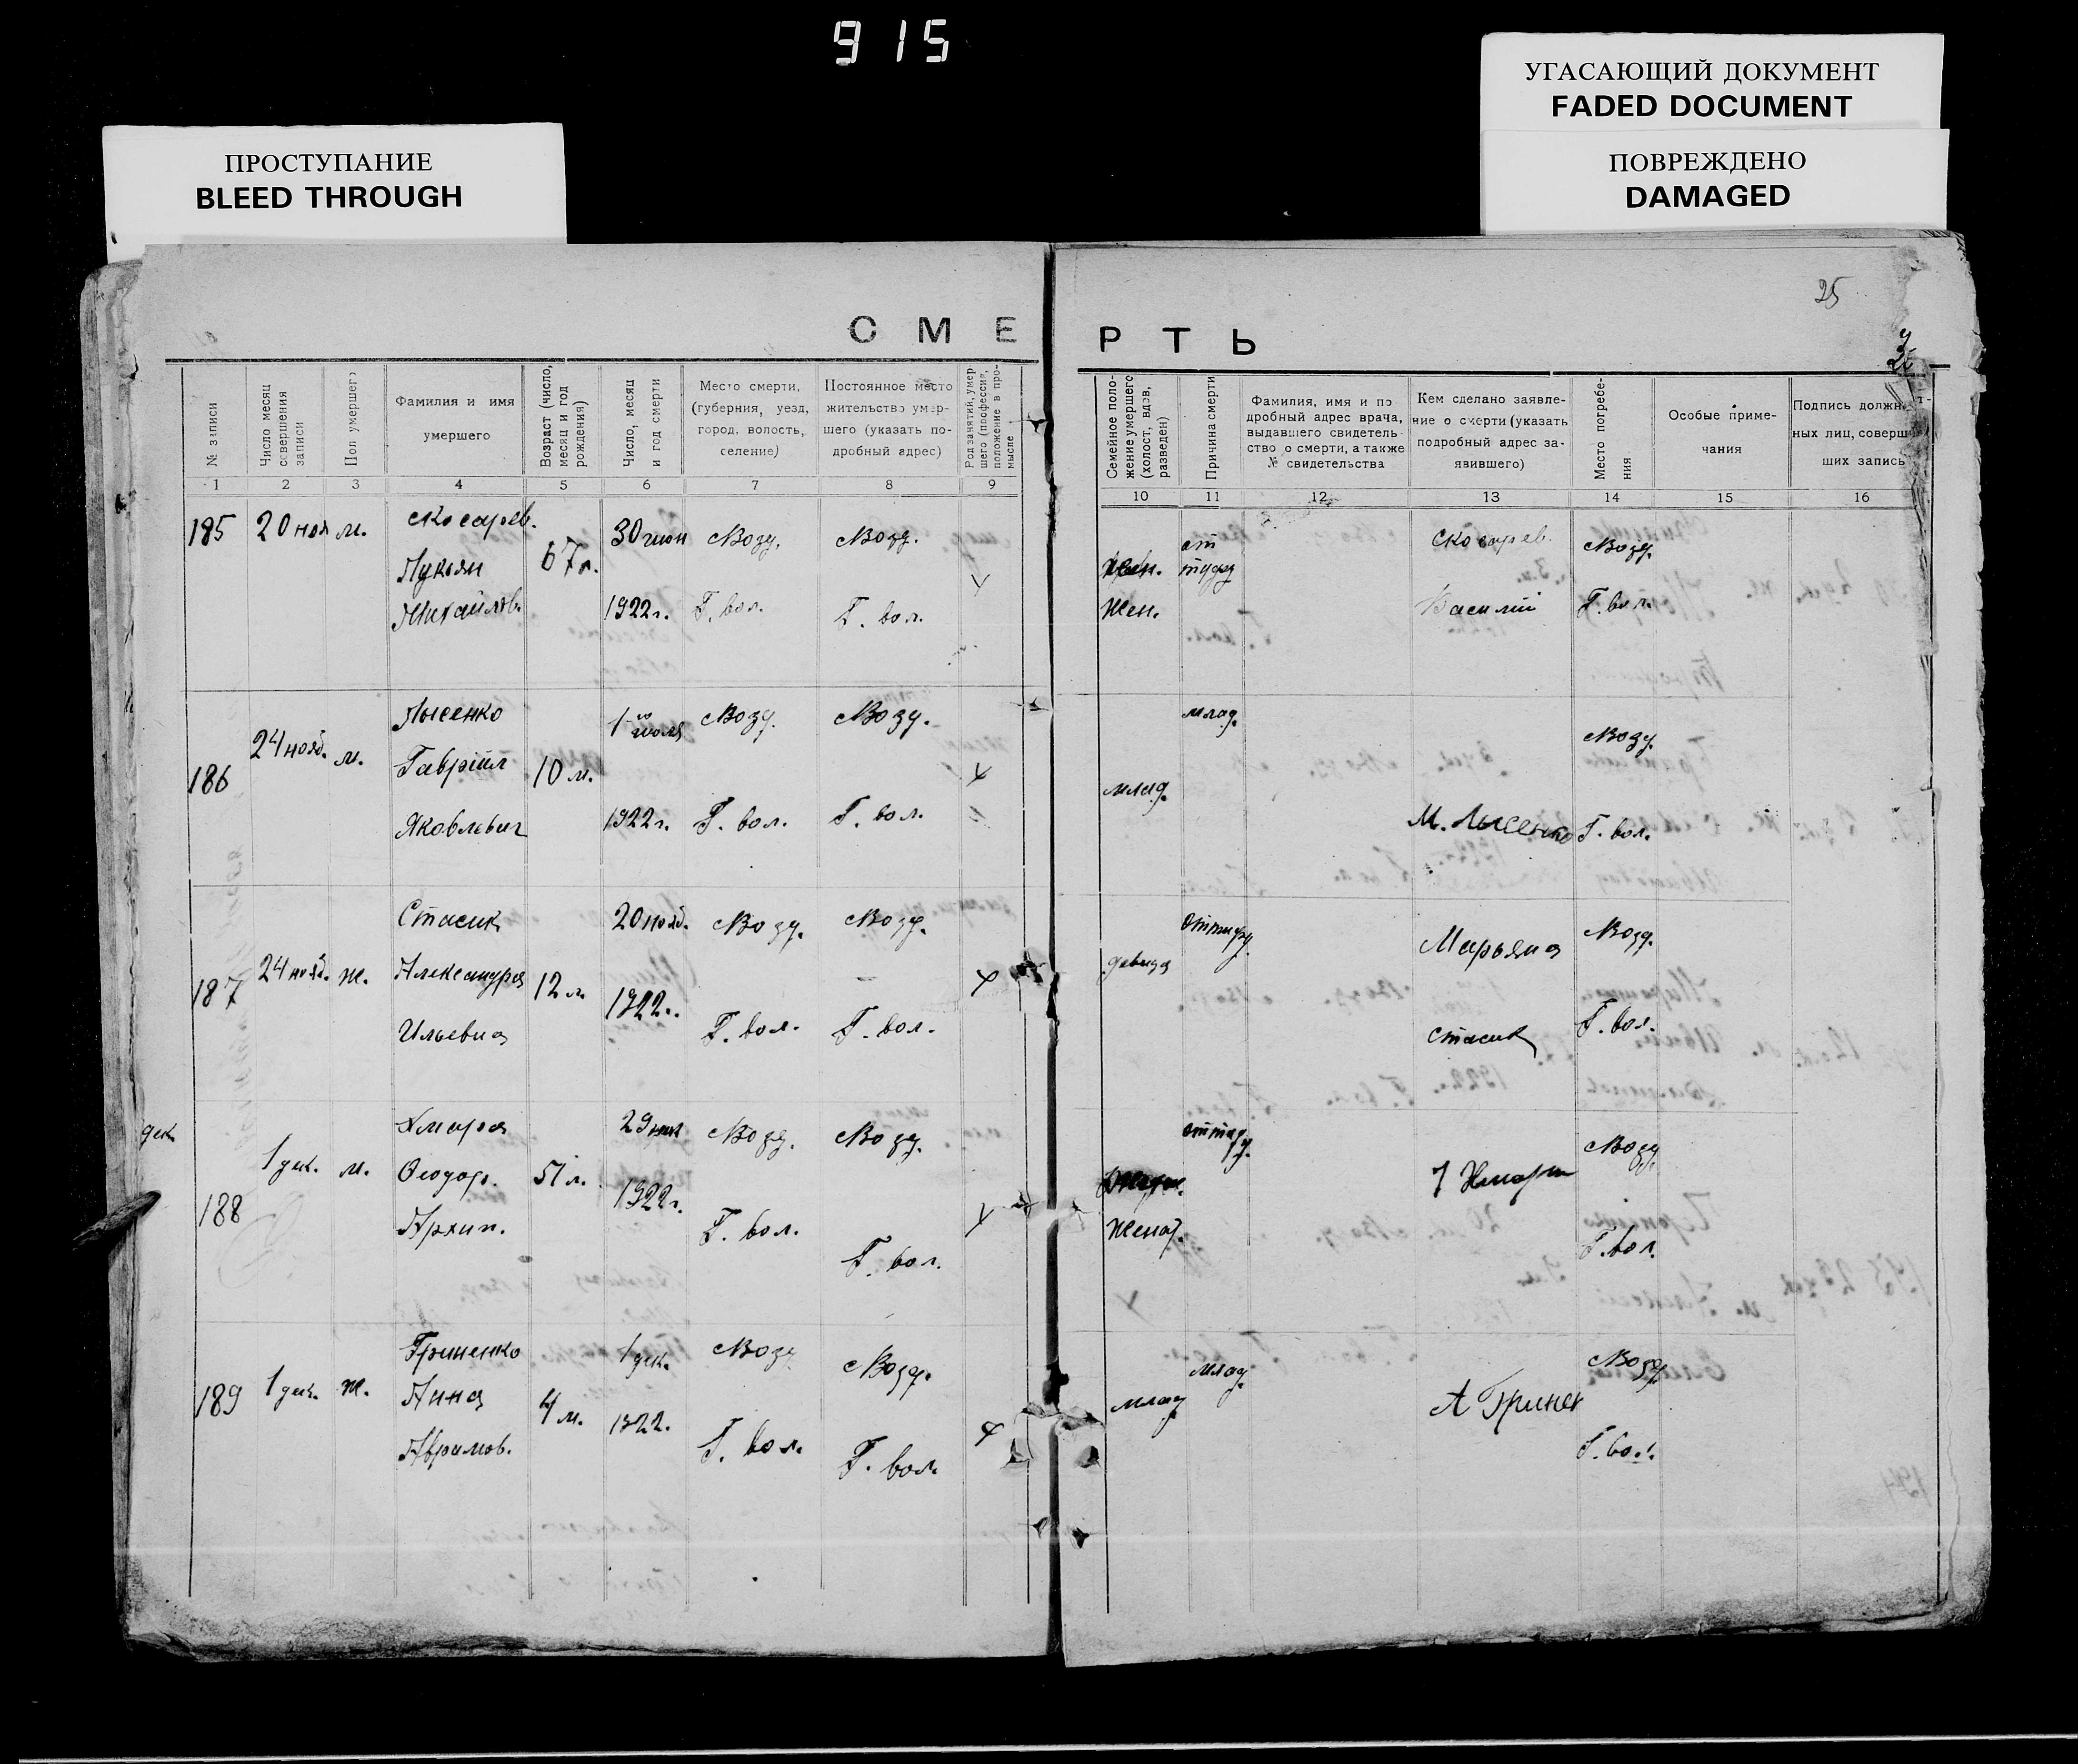 915
УГАСАЮЩИЙ ДОКУМЕНТ
FADED DOCUMENT
ПРОСТУПАНИЕ
BLEED THROUGH
ПОВРЕЖДЕНО
DAMAGED
25
СМЕРТЬ
№ записи
Число месяц совершения записи
Пол умершего
Фамилия и имя
умершего
Возраст (число, месяц и год рождения)
Число, месяц и год смерти
Место смерти,
(губерния, уезд,
город, волость,
селение)
Постоянное место
жительство умер-
шего (указать по-
дробный адрес)
Род занятий, умер-
шего (профессия,
положение в про-
мысле
Семейное поло-
жение умершего
(холост, вдов,
разведен)
Причина смерти
Фамилия, имя и по
дробный адрес врача,
выдавшего свидетель-
ство о смерти, а также
№ свидетельства
Кем сделано заявле-
ние о смерти (указать
подробный адрес за-
явившего)
Место погребе-
ния
Особые приме-
чания
Подпись должн
ных лиц, соверш
ших запись
1 2 3 4 5 6 7 8 9 10 11 12 13 14 15 16
185 20 ноя м. Скосарев.
Лукьян
Михайлов.
67 л.
30
1922 г.
Возд.
Г. вол.
Возд.
Г. вол.
жен.
от
Скосарев
Василий
Возд.
Г. вол.
186 24 нояб. м. Лысенко
Гавріил
Яковлевич
10 м.
1-го июля
1922 г.
Возд.
Г. вол.
Возд.
Г. вол.
млад.
млад.
М. Лысенко
Возд.
Г. вол.
187 24 нояб. ж. Стасик
Александра
Ильевна
12 л.
20 нояб.
1922 г.
Возд.
Г. вол.
Возд.
Г. вол.
девица
Марьяна
Стасик
Возд.
Г. вол.
дек.
188 1 дек. м. Хмара
Ѳеодор.
Архип.
51 л.
29
1922 г.
Возд.
Г. вол.
Возд.
Г. вол.
Женат.
Возд.
Г. вол.
189 1 дек. ж. Гриненко
Анна
Абрамов.
4 м.
1 дек.
1922.
Возд
Г. вол.
Возд.
Г. вол.
млад
млад.
А Гринен
Возд.
Г. вол.